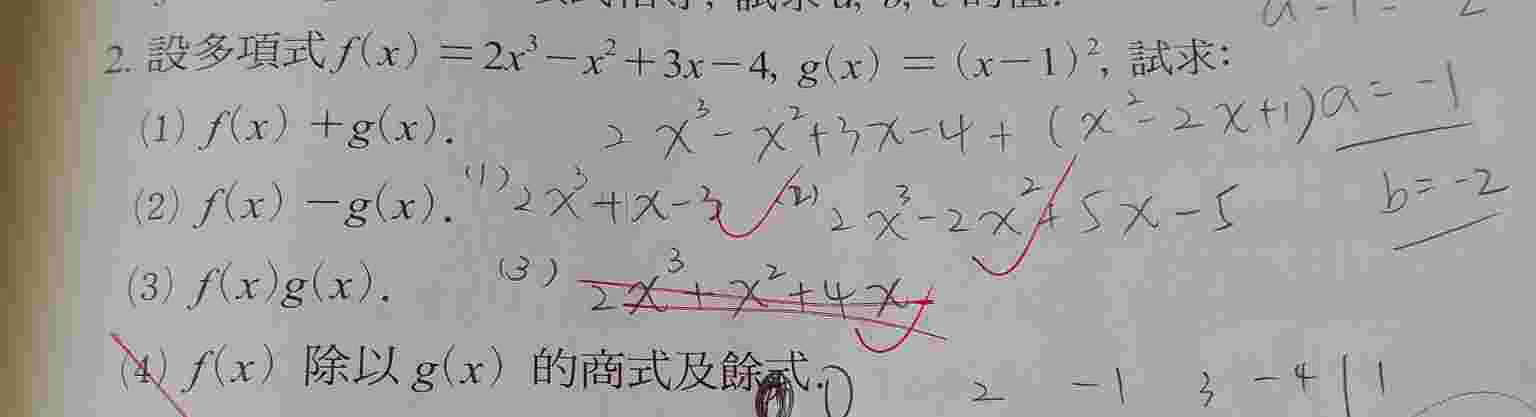 2. 設多項式 f(x) = 2x³-x²+3x-4, g(x) = (x-1)², 試求:
(1) f(x) +g(x). 2x³-x²+3x-4+(x²-2x+1) a=-1
(2) f(x) -g(x). (1) 2x³+x-3 (2) 2x³-2x²+5x-5 b=-2
(3) f(x)g(x). (3) 2x³+x²+4x
(4) f(x) 除以 g(x) 的商式及餘式.
2 -1 3 -4 | 1